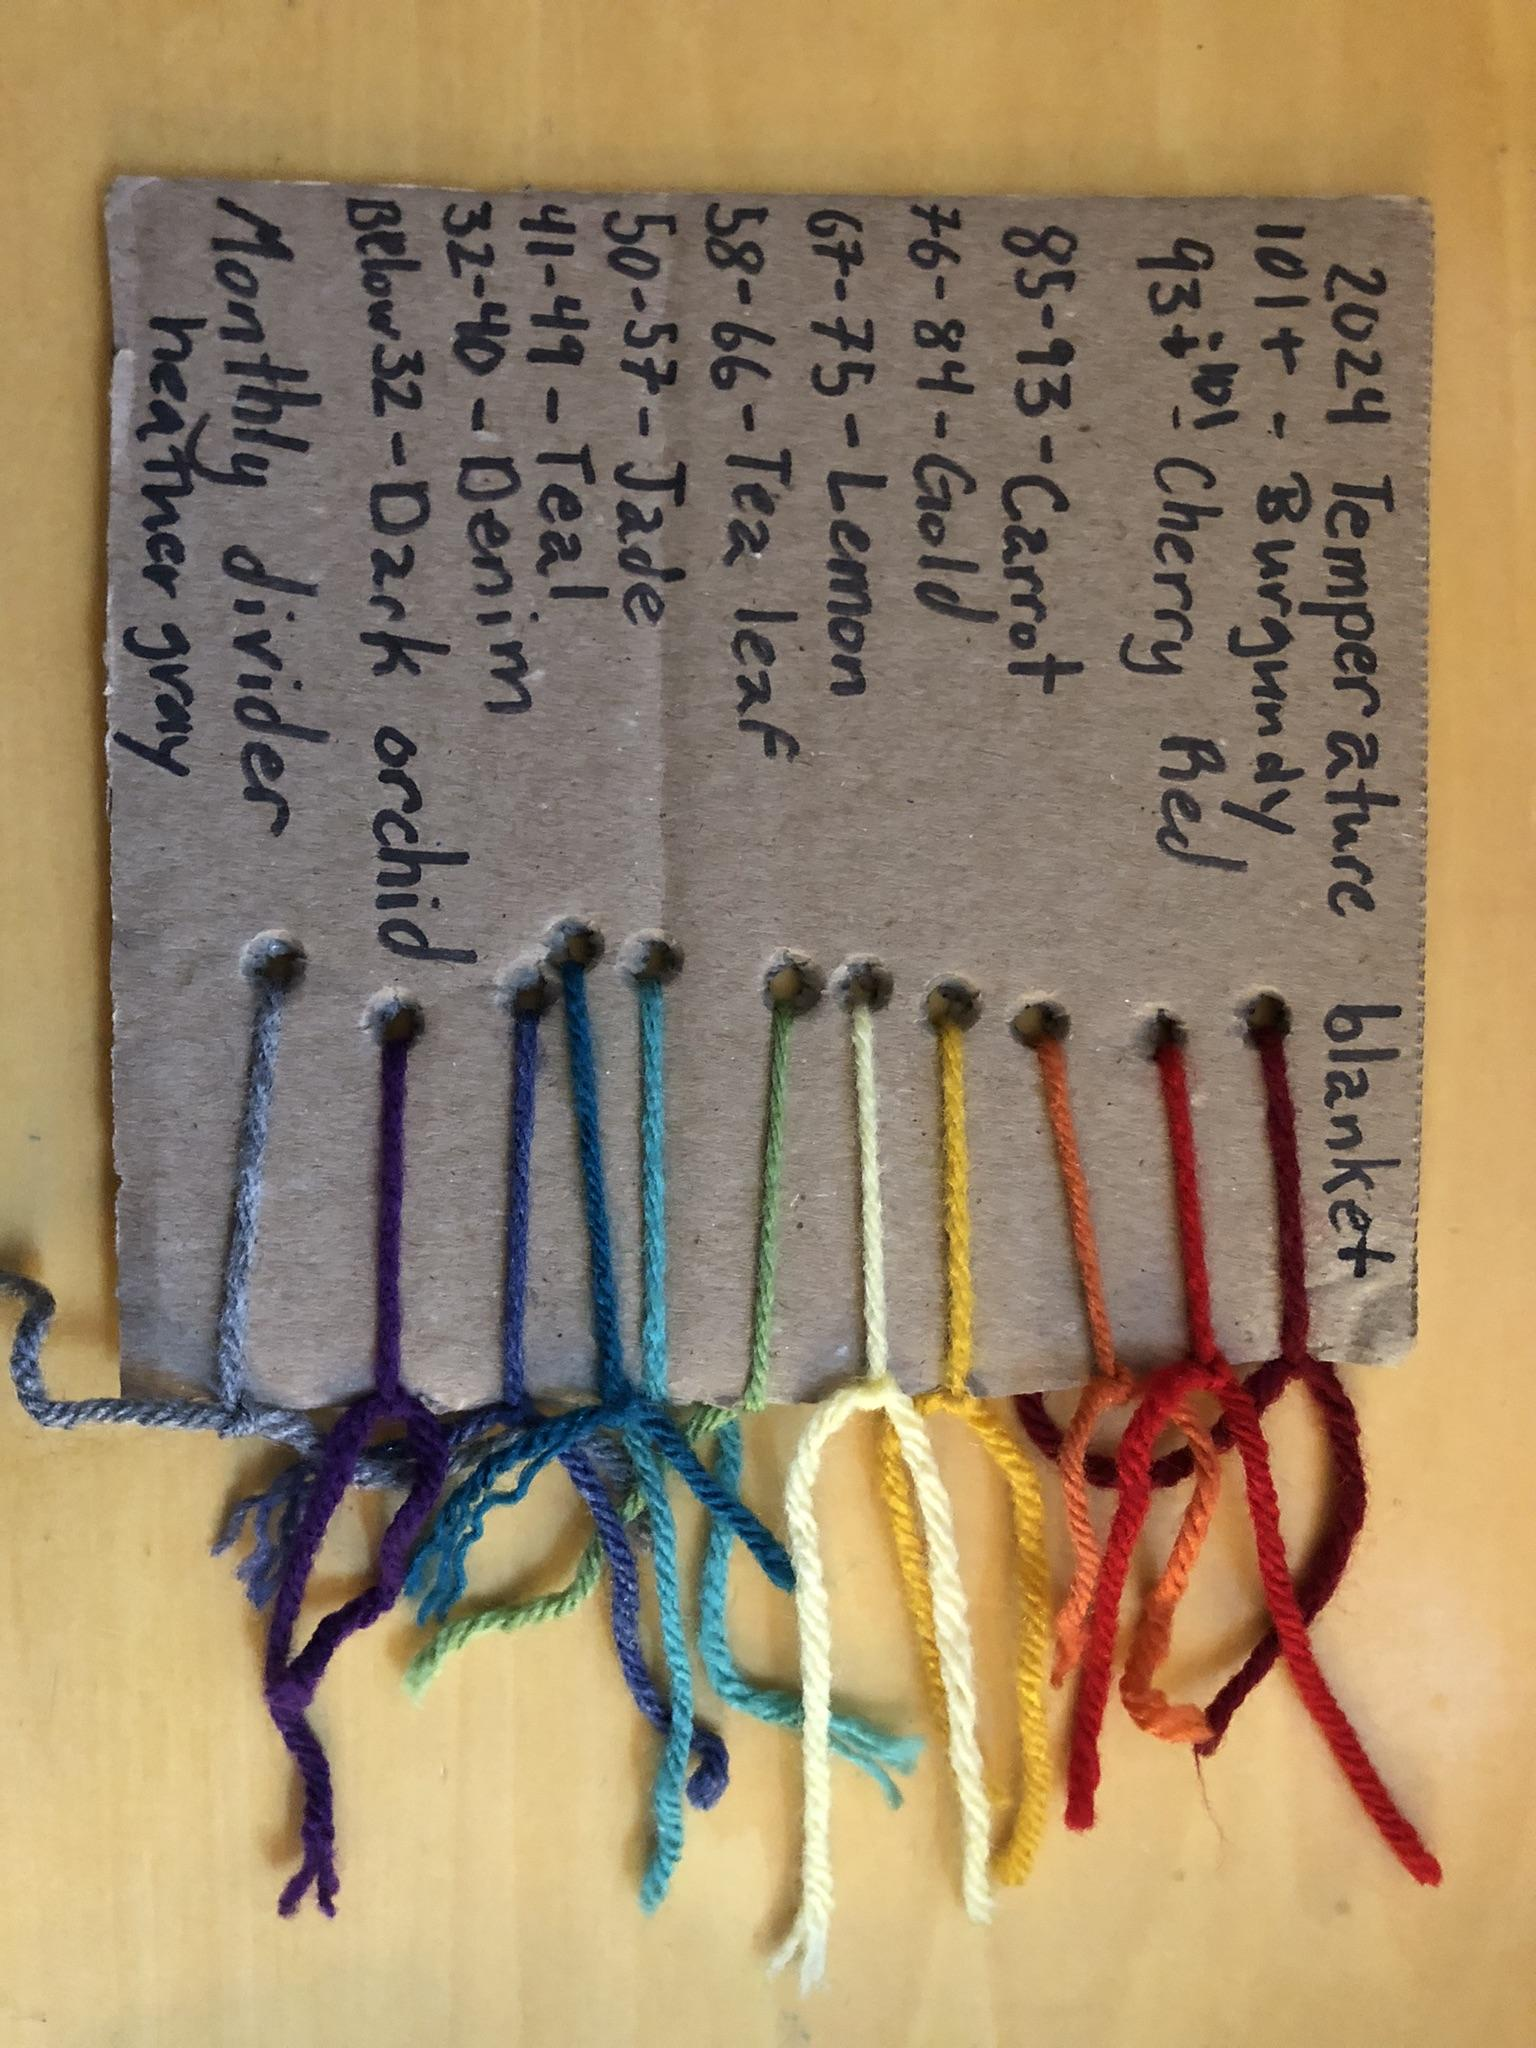 2024 Temperature blanket
101+ - Burgundy
93+-101 - Cherry Red
85-93-Carrot
76-84-Gold
67-75-Lemon
58-66-Tea leaf
50-57-Jade
41-49-Teal
32-40-Denim
Below32-Dark orchid
Monthly divider
heather gray